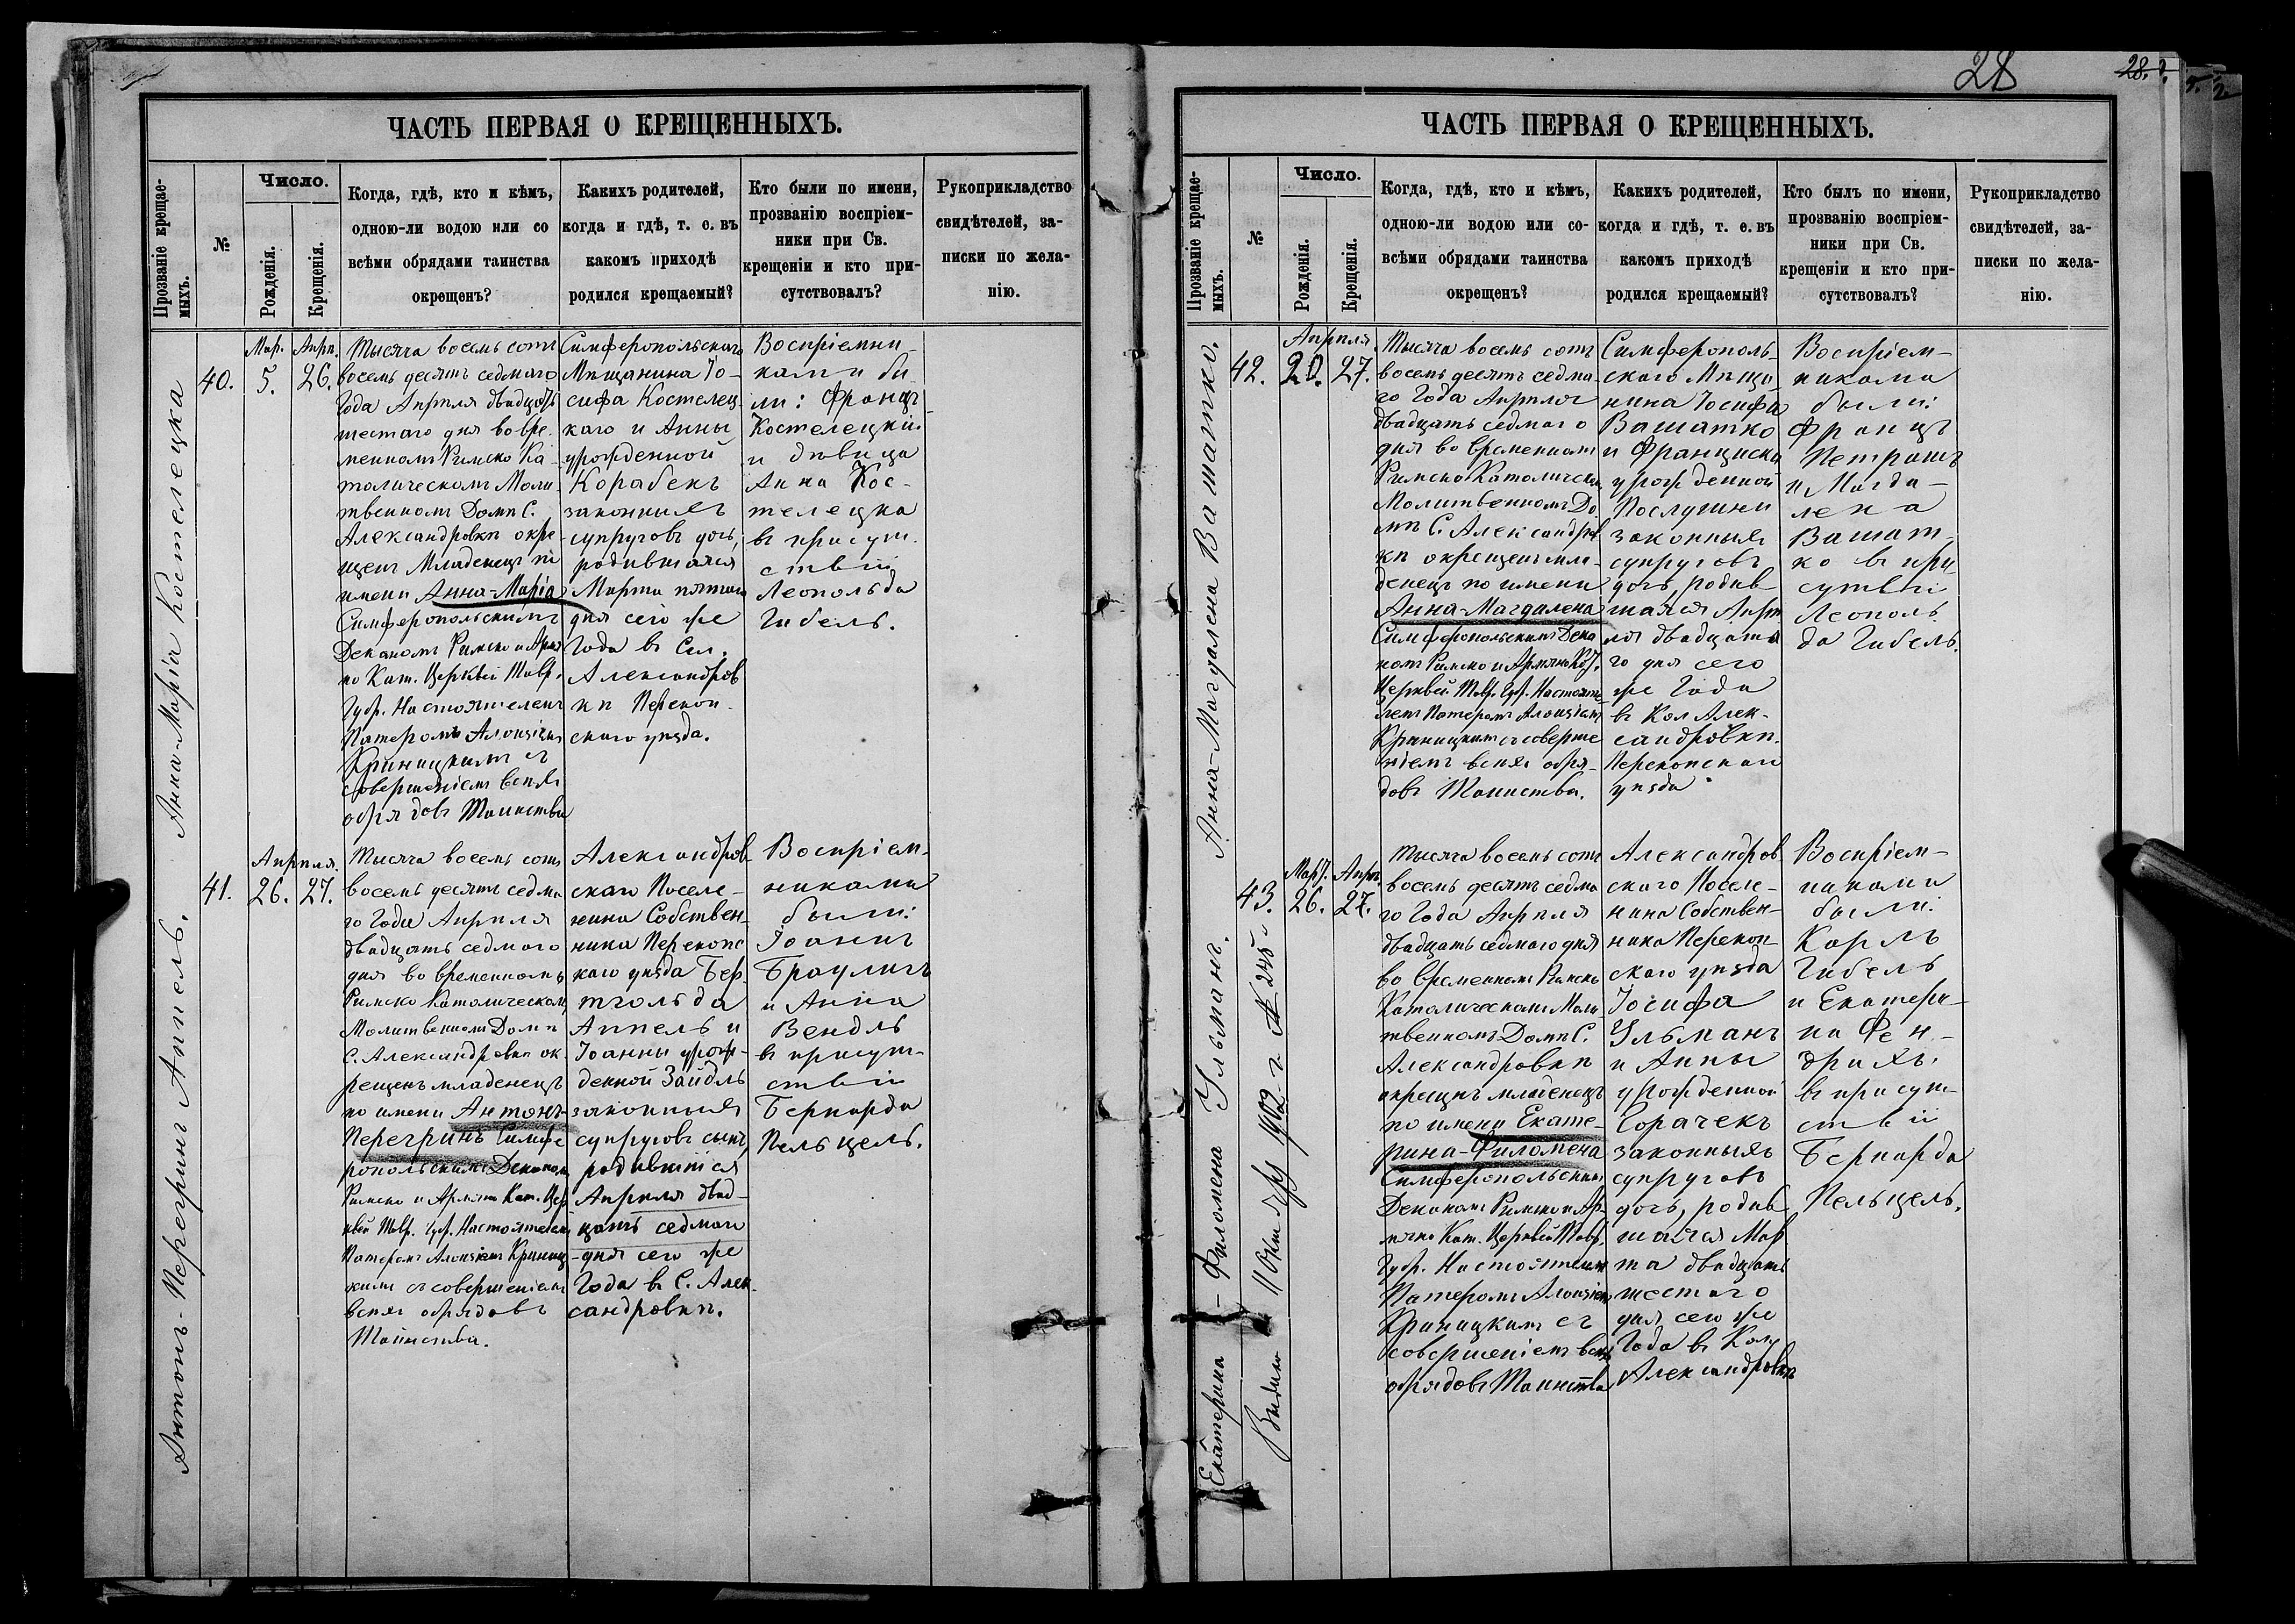 28
28.
ЧАСТЬ ПЕРВАЯ О КРЕЩЕННЫХЪ.
Прозваніе крещае-
мыхъ.
№
Число.
Рожденія.
Крещенія.
Когда, гдѣ, кто и кѣмъ,
одною-ли водою или со
всѣми обрядами таинства
окрещенъ?
Какихъ родителей,
когда и гдѣ, т. е. въ
какомъ приходѣ
родился крещаемый?
Кто были по имени,
прозванію воспріем-
ники при Св.
крещеніи и кто при-
сутствовалъ?
Рукоприкладство
свидѣтелей, за-
писки по жела-
нію.
Анна-Марія Костелецка
40.
Мар.
5.
Апрѣ.
26.
Тысяча восемь сотъ
восемь десятъ седмаго
Года Апрѣля двадцать
шестаго дня во вре-
менномъ Римско Ка-
толическомъ Моли-
твенномъ Домѣ С.
Александровкѣ окре-
щенъ Младенецъ по
имени Анна-Марія
Симферопольскимъ
Деканомъ Римско и Армя
но Кат. Церквей Тавр.
Губ. Настоятелемъ
Патеромъ Алоизіемъ
Криницкимъ съ
совершеніемъ всѣхъ
обрядовъ Таинства
Симферопольскаго
Мѣщанина Іо-
сифа Костелец-
каго и Анны
урожденной
Корабекъ
законныхъ
супруговъ дочь,
родившаяся
Марта пятаго
дня сего же
Года въ Сел.
Александров
кѣ Перекоп-
скаго уѣзда.
Воспріемни-
ками бы-
ли: Францъ
Костелецкій
и дѣвица
Анна Кос-
телецка
въ присут-
ствіи
Леопольда
Гибель.
Антонъ-Перегринъ Аппель.
41.
Апрѣля.
26. 27.
Тысяча восемь сотъ
восемь десятъ седма
го Года Апрѣля
двадцать седмого
дня во временномъ
Римско Католическомъ
Молитвенномъ Домѣ
С. Александровкѣ ок-
рещенъ младенецъ
по имени Антонъ-
Перегринъ Симфе
ропольскимъ Деканомъ
Римско и Армяно Кат. Цер
квей Тавр. Губ. Настоятелемъ
Патеромъ Алоизіемъ Криниц-
кимъ съ совершеніемъ
всѣхъ обрядовъ
Таинства.
Александров
скаго Поселе-
нина Собствен-
ника Перекопс
каго уѣзда Бер-
тгольда
Аппель и
Іоанны урож-
денной Зайдль
законныхъ
супруговъ сынъ,
родившійся
Апрѣля двад-
цать седмаго
дня сего же
Года въ С. Алек-
сандровкѣ.
Воспріем-
никами
были:
Іоаннъ
Браулигъ
и Анна
Вендль
въ присут-
ствіи
Бернарда
Пельцель.
ЧАСТЬ ПЕРВАЯ О КРЕЩЕННЫХЪ.
Прозваніе крещае-
мыхъ.
№
Число.
Рожденія.
Крещенія.
Когда, гдѣ, кто и кѣмъ,
одною-ли водою или со-
всѣми обрядами таинства
окрещенъ?
Какихъ родителей,
когда и гдѣ, т. е. въ
какомъ приходѣ
родился крещаемый?
Кто былъ по имени,
прозванію воспріем-
ники при Св.
крещеніи и кто при-
сутствовалъ?
Рукоприкладство
свидѣтелей, за-
писки по жела-
нію.
Анна-Магдалена Вашатко.
42.
Апрѣля.
20. 27.
Тысяча восемь сотъ
восемь десятъ седма-
го Года Апрѣля
двадцать седмаго
дня во временномъ
Римско Католическ.
Молитвенномъ До-
мѣ С. Александров
кѣ окрещенъ мла-
денецъ по имени
Анна-Магдалена
Симферопольскимъ Дека
номъ Римско и Армяно Кат.
Церквей Тавр. Губ. Настояте
лемъ Патеромъ Алоизіемъ
Криницкимъ съ соверше
ніемъ всѣхъ обря-
довъ Таинства.
Симферополь-
скаго Мѣща
нина Іосифа
Вашатко
и Франциски
урожденной
Послушни
законныхъ
супруговъ
дочь, родив
шаяся Апрѣ
ля двадцата
го дня сего
же Года
въ Кол Алек-
сандровкѣ.
Перекопскаго
уѣзда
Воспріем-
никами
были:
Францъ
Петрашъ
и Магда-
лена
Вашат-
ко въ при
сутвіи
Леополь
да Гибель.
Екатерина - Филомена Ульманъ.
Выдано 11 Октября 1902 г. № 245
43.
Март. Апрѣ.
26. 27.
Тысяча восемь сотъ
восемь десятъ седма
го Года Апрѣля
двадцать седмаго дня
во временномъ Римско
Католическомъ Моли
твенномъ Домѣ С.
Александровкѣ
окрещенъ младенецъ
по имени Екате-
рина-Филомена
Симферопольскимъ
Деканомъ Римско и Ар-
мяно Кат. Церквей Тавр.
Губ. Настоятелемъ
Патеромъ Алоизіемъ
Криницкимъ съ
совершеніемъ всѣхъ
обрядовъ Таинства
Александров
скаго Поселе-
нина Собствен-
ника Перекоп-
скаго уѣзда
Іосифа
Ульманъ
и Анны
урожденной
Сорачекъ
законныхъ
супруговъ
дочь, родив
шаяся Мар
та двадцать
шестаго
дня сего же
Года въ Кол
Александровкѣ
Воспріем-
никами
были:
Карлъ
Гибель
и Екатери-
на Фен-
дрихъ.
въ присут-
ствіи
Бернарда
Пельцель.